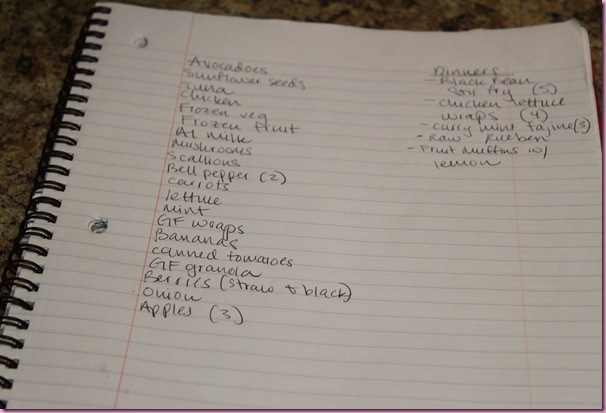 Avocadoes
Sunflower seeds
Tuna
Chicken
Frozen veg
Frozen fruit
Al milk
Mushrooms
Scallions
Bell pepper (2)
carrots
lettuce
Mint
GF wraps
Bananas
canned tomatoes
GF granola
Berries (straw + black)
Onion
Apples (3)
Dinners
- Black Bean
Stir fry (5)
- chicken lettuce
wraps (4)
- curry mint tajine (3)
- Raw Rueben
- Fruit Muffins w/
lemon